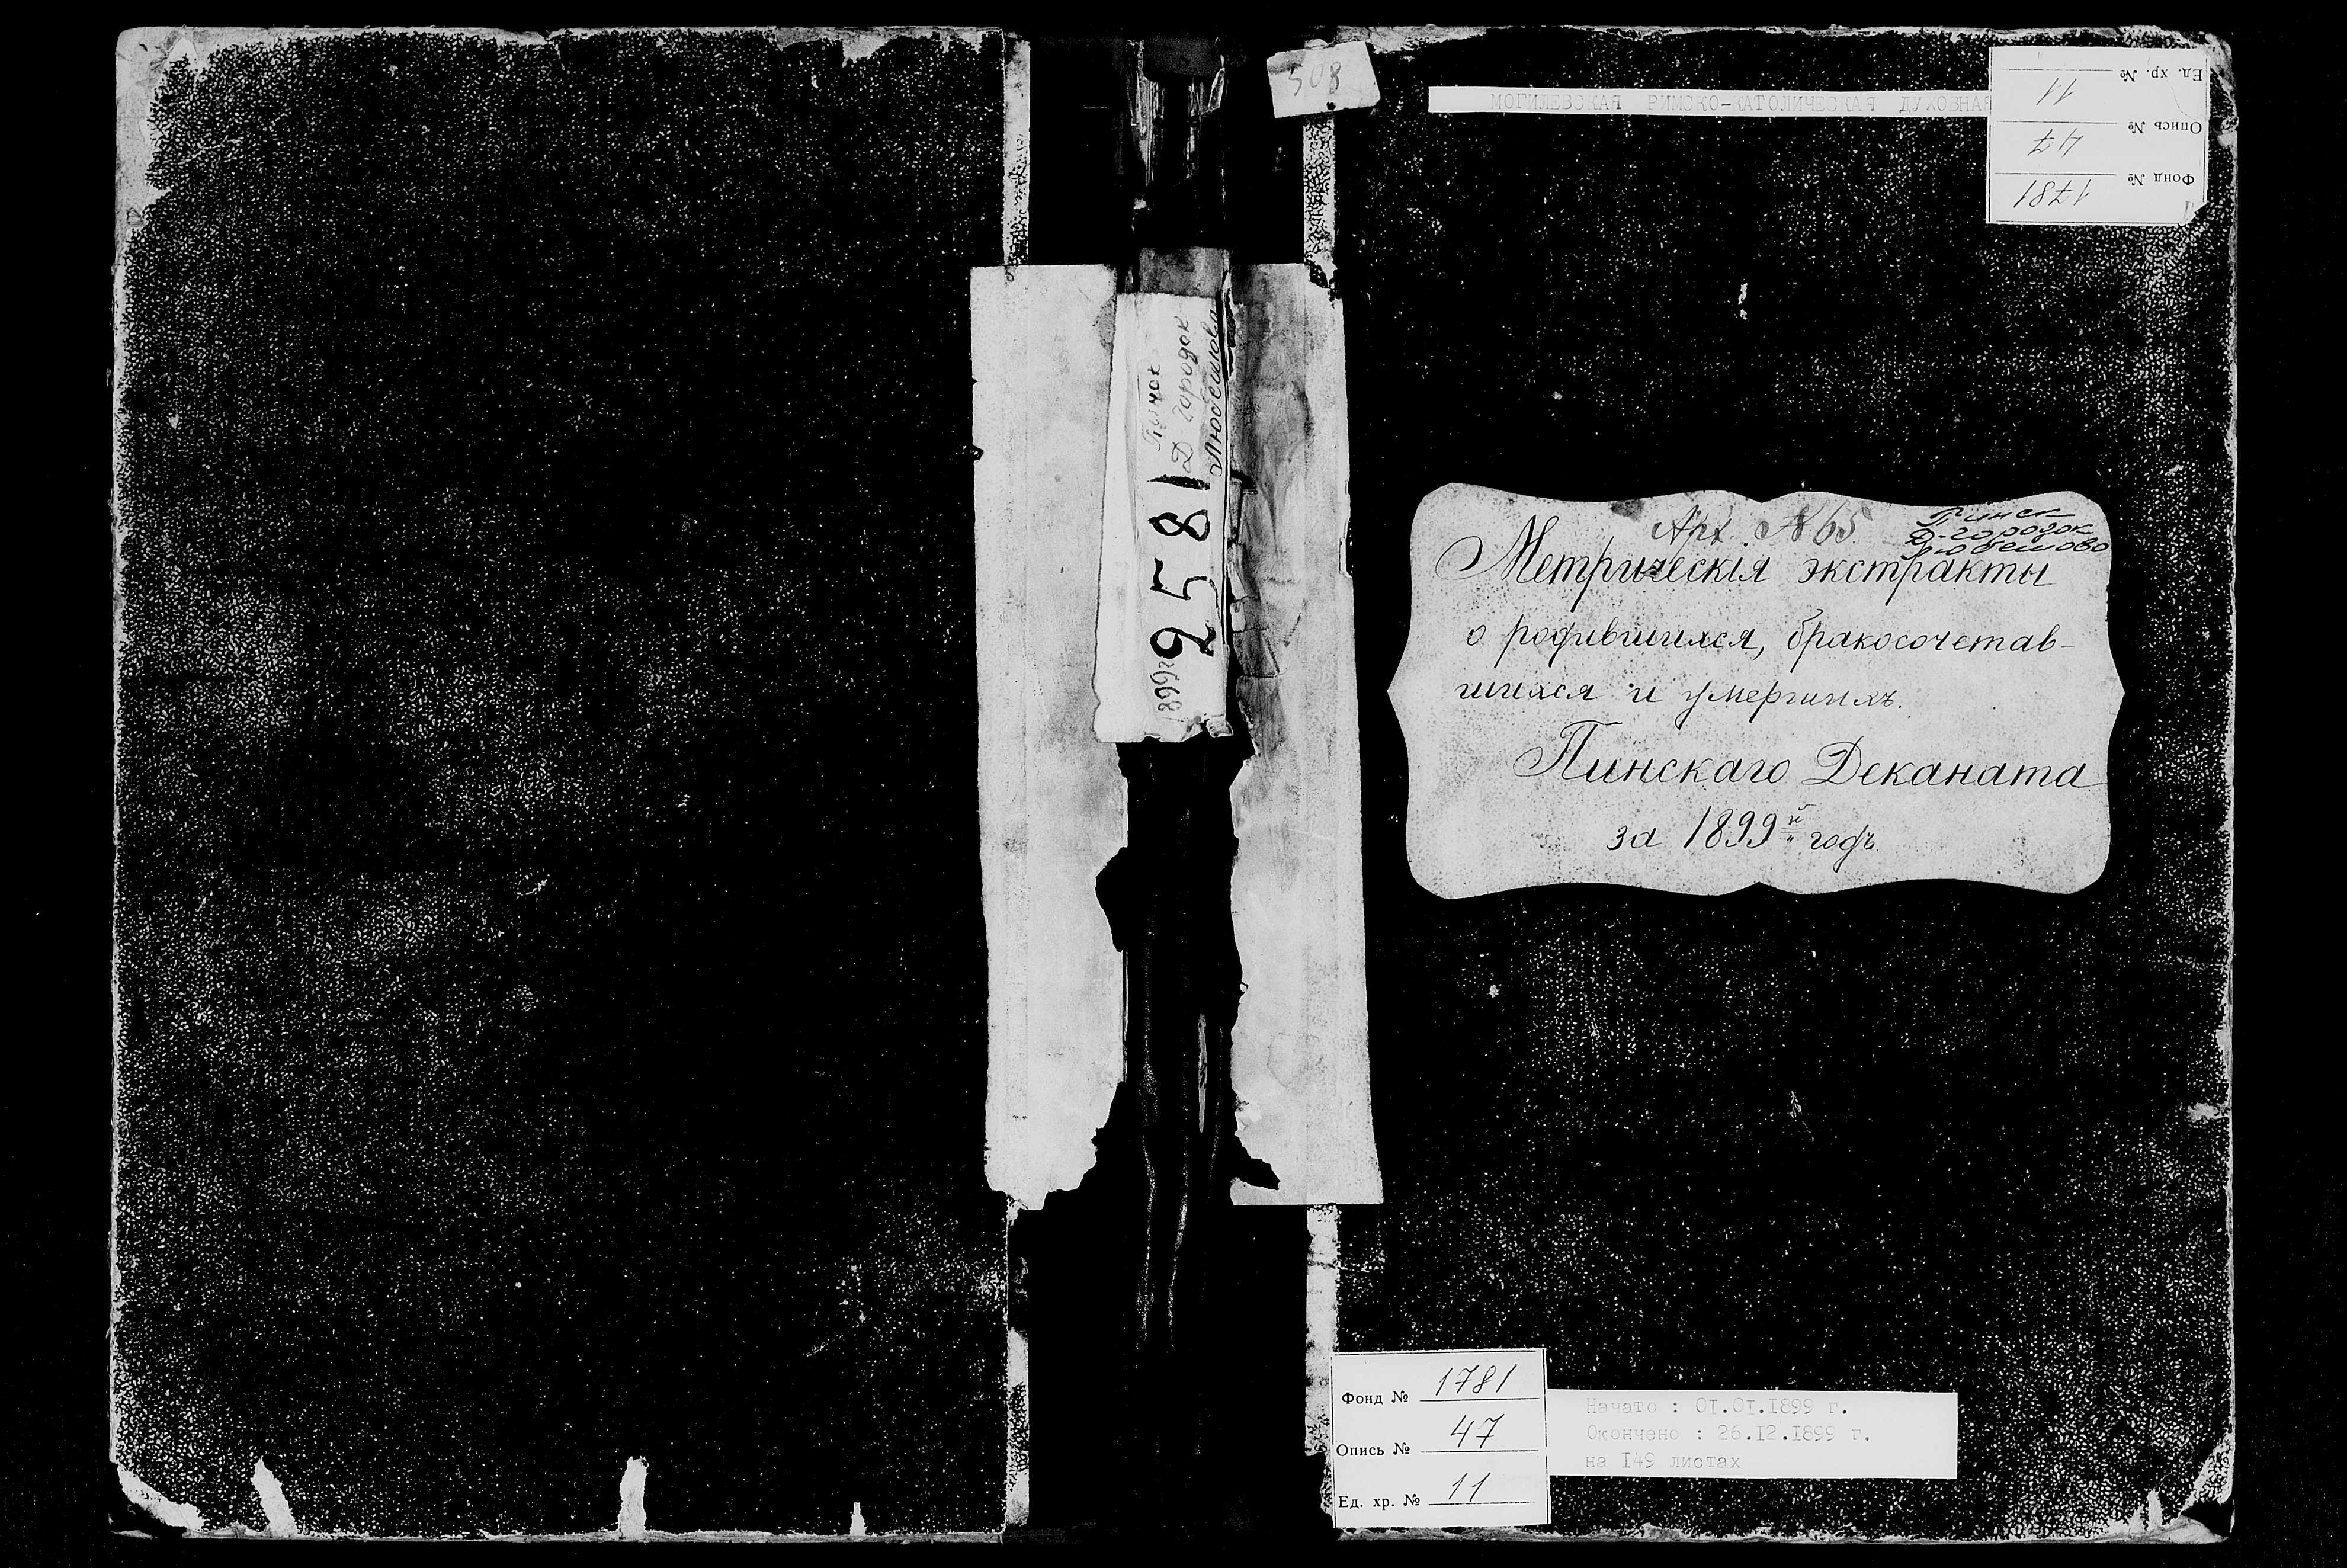 508
МОГИЛЕВСКАЯ РИМСКО-КАТОЛИЧЕСКАЯ ДУХОВНАЯ
Фонд № 1781
Опись № 47
Ед. хр. № 11
Д Городок
Любешово
2581
1899г
Арх. №65.
Пинск
Д-городок
Любешово
Метрическія экстракты
о родившихся, бракосочетав-
шихся и умершихъ.
Пинскаго Деканата
за 1899й годъ.
Фонд № 1781
Опись № 47
Ед. хр. № 11
Начато : 01.01.1899 г.
Окончено : 26.12.1899 г.
на 149 листах